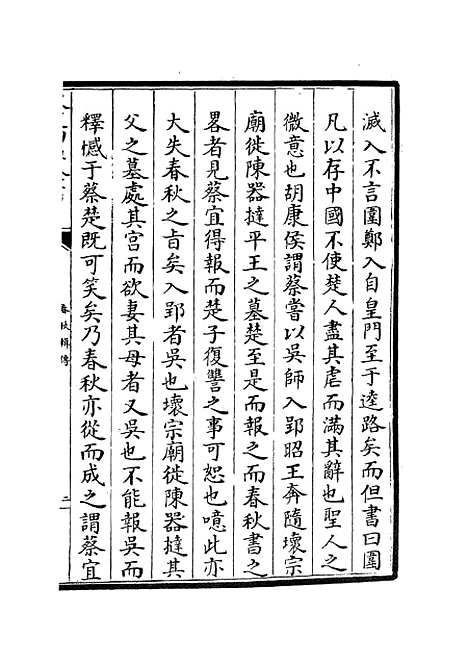 滅入不言圍鄭入自皇門至于逵路矣而但書曰圍
凡以存中國不使楚人盡其虐而滿其辭也聖人之
微意也胡康侯謂蔡嘗以吳師入郢昭王奔隨壞宗
廟徙陳器撻平王之墓楚至是而報之而春秋書之
畧者見蔡宜得報而楚子復讐之事可恕也噫此亦
大失春秋之旨矣入郢者吳也壞宗廟徙陳器撻其
父之墓處其宮而欲妻其母者又吳也不能報吳而
釋憾于蔡楚旣可笑矣乃春秋亦從而成之謂蔡宜
春秋輯傳
二